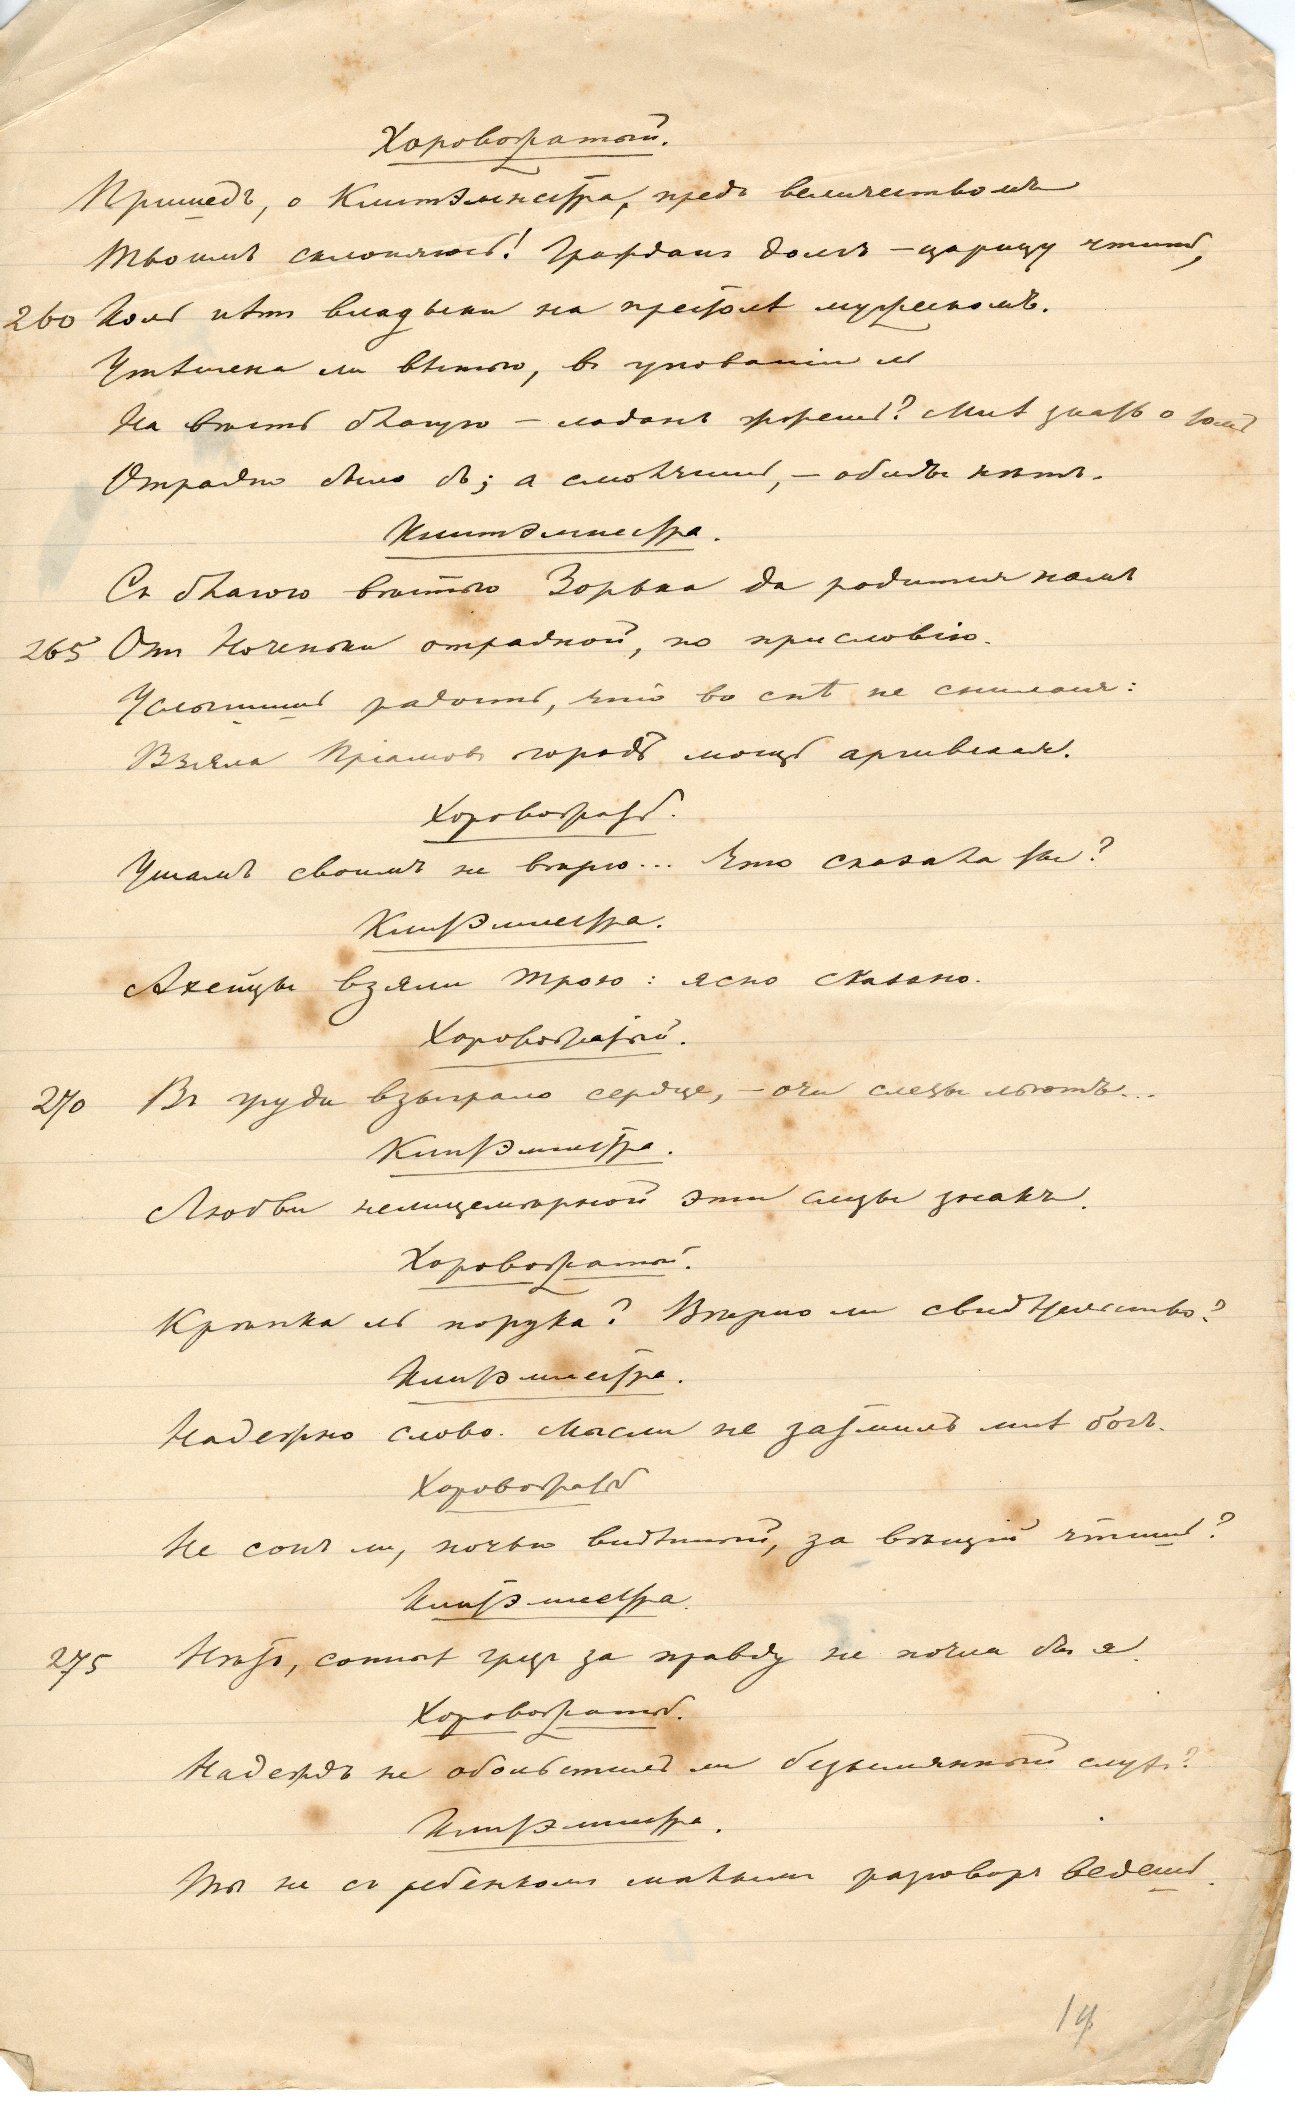 Хоровожатый.
Пришедъ, о Клитэмнестра, предъ величествомъ
Твоимъ склоняюсь! Гражданъ долгъ – царицу чтить,
260 Коль нѣтъ владыки на престолѣ мужескомъ.
Утѣшена ли вѣстью, въ упованіи ль
На вѣсть благую – ладанъ куришь? Мнѣ знать о томъ
Отрадно было бъ; а смолчишь, – обиды нѣтъ.
Клитэмнестра.
Съ благою вѣстью Зорька да родится намъ
265 Отъ Ноченьки отрадной, по присловію.
Услышишь радость, что во снѣ не снилася:
Взяла Пріамовъ городъ мощь аргивская.
Хоровожатый.
Ушамъ своимъ не вѣрю... Что сказала ты?
Клитэмнестра.
Ахейцы взяли Трою: ясно сказано.
Хоровожатый.
270 Въ груди взыграло сердце, – очи слезы льютъ...
Клитэмнестра.
Любви нелицемѣрной эти слезы знакъ.
Хоровожатый.
Крѣпка ль порука? Вѣрно ли свидѣтельство?
Клитэмнестра.
Надежно слово. Мысли не затмилъ мнѣ богъ.
Хоровожатый
Не сонъ ли, ночью видѣнный, за вѣщій чтишь?
Клитэмнестра.
275 Нѣтъ, сонныхъ грезъ за правду не почла бы я.
Хоровожатый.
Надеждъ не обольстилъ ли безымянный слухъ?
Клитэмнестра.
Ты не съ ребенкомъ малымъ разговоръ ведешь.
14